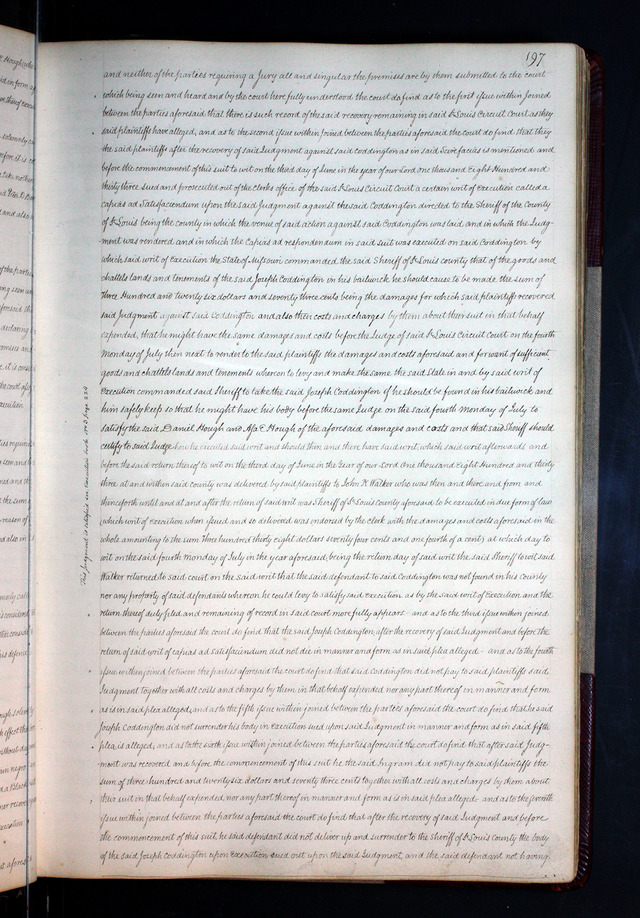 197
and neither of the parties requiring a Jury all and singular the premises are by them submitted to the court
which being seen and heard and by the court here fully understood the court do find as to the first issue within Joined
between the parties aforesaid that there is such record of the said recovery remaining in said St Louis Circuit Court as they
said plaintiffs have alleged, and as to the second issue within Joined between the parties aforesaid the court do find that they
the said plaintiffs after the recovery of said Judgment against said Coddington as in said Scire facias is mentioned and
before the commencement of this suit to wit on the third day of June in the year of our Lord One thousand Eight Hundred and
thirty three sued and prosecuted out of the Clerks office of the said St Louis Circuit Court a certain writ of Execution called a
capias ad Satisfaciendum upon the said Judgment against the said Coddington directed to the Sheriff of the County
of St Louis being the county in which the venue of said action against said Coddington was laid and in which the Judg-
ment was rendered and in which the Capias ad respondendum in said suit was executed on said Coddington by
which said writ of Execution the State of Missouri commanded the said Sheriff of St Louis county that of the goods and
chattels lands and tenements of the said Joseph Coddington in his bailwick he should cause to be made the sum of
Three Hundred and twenty six dollars and seventy three cents being the damages for which said plaintiffs recovered
said Judgment against said Coddington and also their costs and charges by them about their suit in that behalf
expended, that he might have the same damages and costs before the Judge of said St Louis Circuit Court on the fourth
Monday of July then next to render to the said plaintiffs the damages and costs aforesaid and for want of sufficient
goods and chattels lands and tenements whereon to levy and make the same the said State in and by said writ of
Execution commanded said Sheriff to take the said Joseph Coddington if he should be found in his bailwick and
him safely keep so that he might have his body before the same Judge on the said fourth Monday of July to
satisfy the said Daniel Hough and Asa E Hough of the aforesaid damages and costs and that said Sheriff should
certify to said Judge how he executed said writ and should then and there have said writ, which said writ afterwards and
before the said return thereof to wit on the third day of June in the Year of our Lord One thousand Eight Hundred and thirty
three at and within said county was delivered by said plaintiffs to John K Walker who was then and there and from and
thenceforth until and at and after the return of said writ was Sheriff of St Louis county aforesaid to be executed in due form of law
which writ of execution when issued and so delivered was indorsed by the clerk with the damages and costs aforesaid in the
whole amounting to the sum three hundred thirty eight dollars seventy four cents and one fourth of a cent; at which day to
wit on the said fourth Monday of July in the year aforesaid; being the return day of said writ the said Sheriff to wit said
Walker returned to said court on the said writ that the said defendant to said Coddington was not found in his County
nor any property of said defendants whereon he could levy to satisfy said execution as by the said writ of Execution and the
return thereof duly filed and remaining of record in said court more fully appears - and as to the third issue within joined
between the parties aforesaid the court do find that the said Joseph Coddington, after the recovery of said Judgment and before the
return of said writ of capias ad satisfaciendum did not die in manner and form as in said plea alleged - and as to the fourth
issue within joined between the parties aforesaid the court do find that said Coddington did not pay to said plaintiffs said
Judgment together with all costs and charges by them in that behalf expended nor any part thereof in manner and form
as is in said plea alleged, and as to the fifth issue within joined between the parties aforesaid the court do find that he said
Joseph Coddington did not surrender his body in execution sued upon said Judgment in manner and form as in said fifth
plea is alleged, and as to the sixth issue within joined between the parties aforesaid the court do find that after said Judg-
ment was recovered and before the commencement of this suit he the said Ingram did not pay to said plaintiffs the
sum of three hundred and twenty six dollars and seventy three cents together with all costs and charges by them about
their suit in that behalf expended nor any part thereof in manner and form as in said plea alleged - and as to the seventh
issue within joined between the parties aforesaid the court do find that after the recovery of said Judgment and before
the commencement of this suit he said defendant did not deliver up and surrender to the Sheriff of St Louis County the body
of the said Joseph Coddington upon Execution sued out upon the said Judgment, and the said defendant not having
This Judgment is satisfied see Execution Book page 234